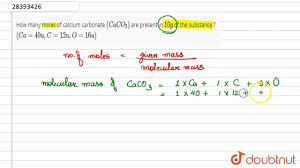 28393426
How many moles of calcium carbonate (CaCO₃) are present in 10g of the substance?
(Ca = 40u, C = 12u, O = 16u)
no. of moles = given mass
molecular mass
molecular mass of CaCO₃ = 1×Ca + 1×C + 3×O
= 1×40 + 1×12 +
doubtnut